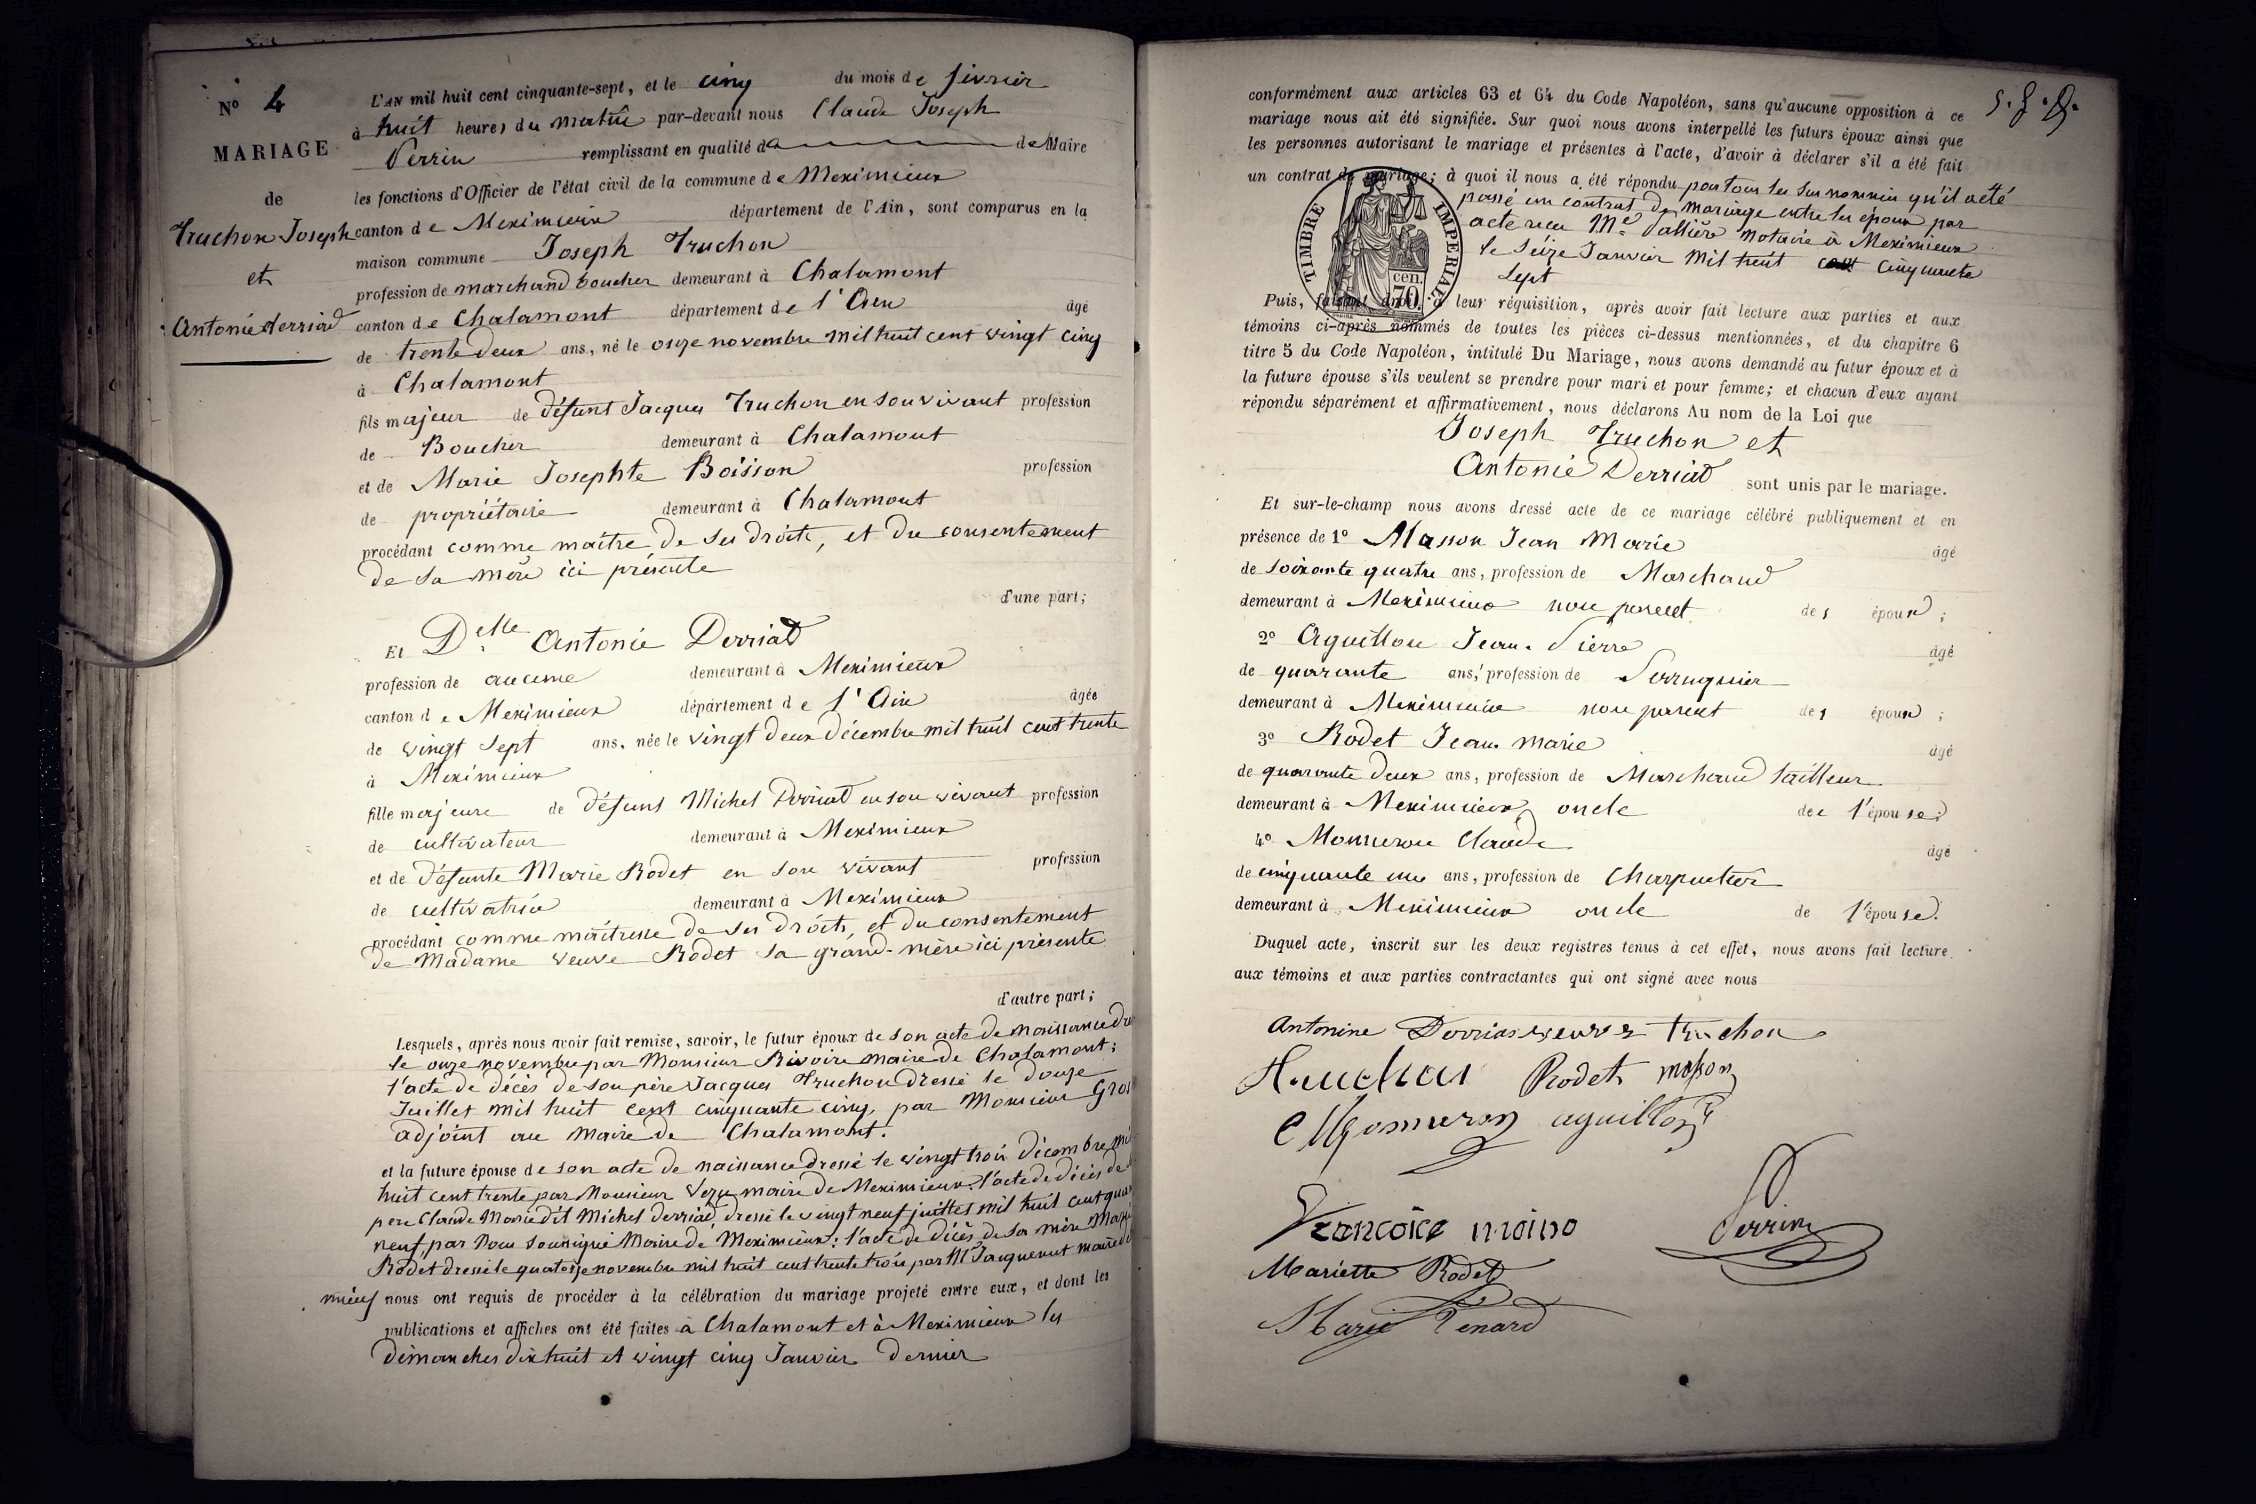 N° 4
MARIAGE
de
Truchon Joseph
et
Antonie Derriad
L'AN mil huit cent cinquante-sept, et le cinq du mois de février
à huit heures du matin par-devant nous Claude Joseph
Perrin remplissant en qualité de Maire
les fonctions d'Officier de l'état civil de la commune de Meximieux
canton de Meximieux département de l'Ain, sont comparus en la
maison commune Joseph Truchon
profession de marchand boucher demeurant à Chalamont
canton de Chalamont département de l'Ain âgé
de trente deux ans, né le onze novembre mil huit cent vingt cinq
à Chalamont
fils majeur de défunt Jacques Truchon en son vivant profession
de Boucher demeurant à Chalamont
et de Marie Josephte Boisson profession
de propriétaire demeurant à Chalamont
procédant comme maître de ses droits, et du consentement
de sa mère ici présente
d'une part;
Et Delle Antonie Derriad
profession de aucune demeurant à Meximieux
canton de Meximieux département de l'Ain âgée
de vingt sept ans, née le vingt deux décembre mil huit cent trente
à Meximieux
fille majeure de défunt Michel Derriad en son vivant profession
de cultivateur demeurant à Meximieux
et de défunte Marie Rodet en son vivant profession
de cultivatrice demeurant à Meximieux
procédant comme maîtresse de ses droits, et du consentement
de Madame veuve Rodet sa grand-mère ici présente
d'autre part;
Lesquels, après nous avoir fait remise, savoir, le futur époux de son acte de naissance
le onze novembre par Monsieur Rivoire maire de Chalamont;
l'acte de décès de son père Jacques Truchon dressé le douze
Juillet mil huit cent cinquante cinq, par Monsieur Gros
adjoint au maire de Chalamont.
et la future épouse de son acte de naissance dressé le vingt trois décembre mil
huit cent trente par Monsieur maire de Meximieux; l'acte de décès de
père Claude Marie dit Michel Derriad, dressé le vingt neuf juillet mil huit cent
neuf, par Nous soussigné Maire de Meximieux; l'acte de décès de sa mère Marie
Rodet dressé le quatorze novembre mil huit cent trente trois par Mr Jacquemet maire de
nous ont requis de procéder à la célébration du mariage projeté entre eux, et dont les
publications et affiches ont été faites à Chalamont et à Meximieux les
dimanches dix huit et vingt cinq Janvier dernier
conformément aux articles 63 et 64 du Code Napoléon, sans qu'aucune opposition à ce
mariage nous ait été signifiée. Sur quoi nous avons interpellé les futurs époux ainsi que
les personnes autorisant le mariage et présentes à l'acte, d'avoir à déclarer s'il a été fait
un contrat de mariage; à quoi il nous a été répondu par tous les sus nommés qu'il a été
passé un contrat de mariage entre les époux par
acte reçu Me Vallière notaire à Meximieux
le seize Janvier mil huit cent cinquante
sept
TIMBRE IMPÉRIAL
70 cen.
Puis, faisant droit à leur réquisition, après avoir fait lecture aux parties et aux
témoins ci-après nommés de toutes les pièces ci-dessus mentionnées, et du chapitre 6
titre 5 du Code Napoléon, intitulé Du Mariage, nous avons demandé au futur époux et à
la future épouse s'ils veulent se prendre pour mari et pour femme; et chacun d'eux ayant
répondu séparément et affirmativement, nous déclarons Au nom de la Loi que
Joseph Truchon et
Antonie Derriad sont unis par le mariage.
Et sur-le-champ nous avons dressé acte de ce mariage célébré publiquement et en
présence de 1° Masson Jean Marie âgé
de soixante quatre ans, profession de Marchand
demeurant à Meximieux non parent des époux;
2° Aguillon Jean-Pierre âgé
de quarante ans, profession de Perruquier
demeurant à Meximieux non parent des époux;
3° Rodet Jean Marie âgé
de quarante deux ans, profession de Marchand tailleur
demeurant à Meximieux, oncle de l'épouse;
4° Monneron Claude âgé
de cinquante un ans, profession de Charpentier
demeurant à Meximieux oncle de l'épouse.
Duquel acte, inscrit sur les deux registres tenus à cet effet, nous avons fait lecture
aux témoins et aux parties contractantes qui ont signé avec nous
Antonine Dorrias veuve Truchon
Truchon Rodet masson
C Monneron aguillon
Francoise moino Perrin
Mariette Rodet
Marie Penard